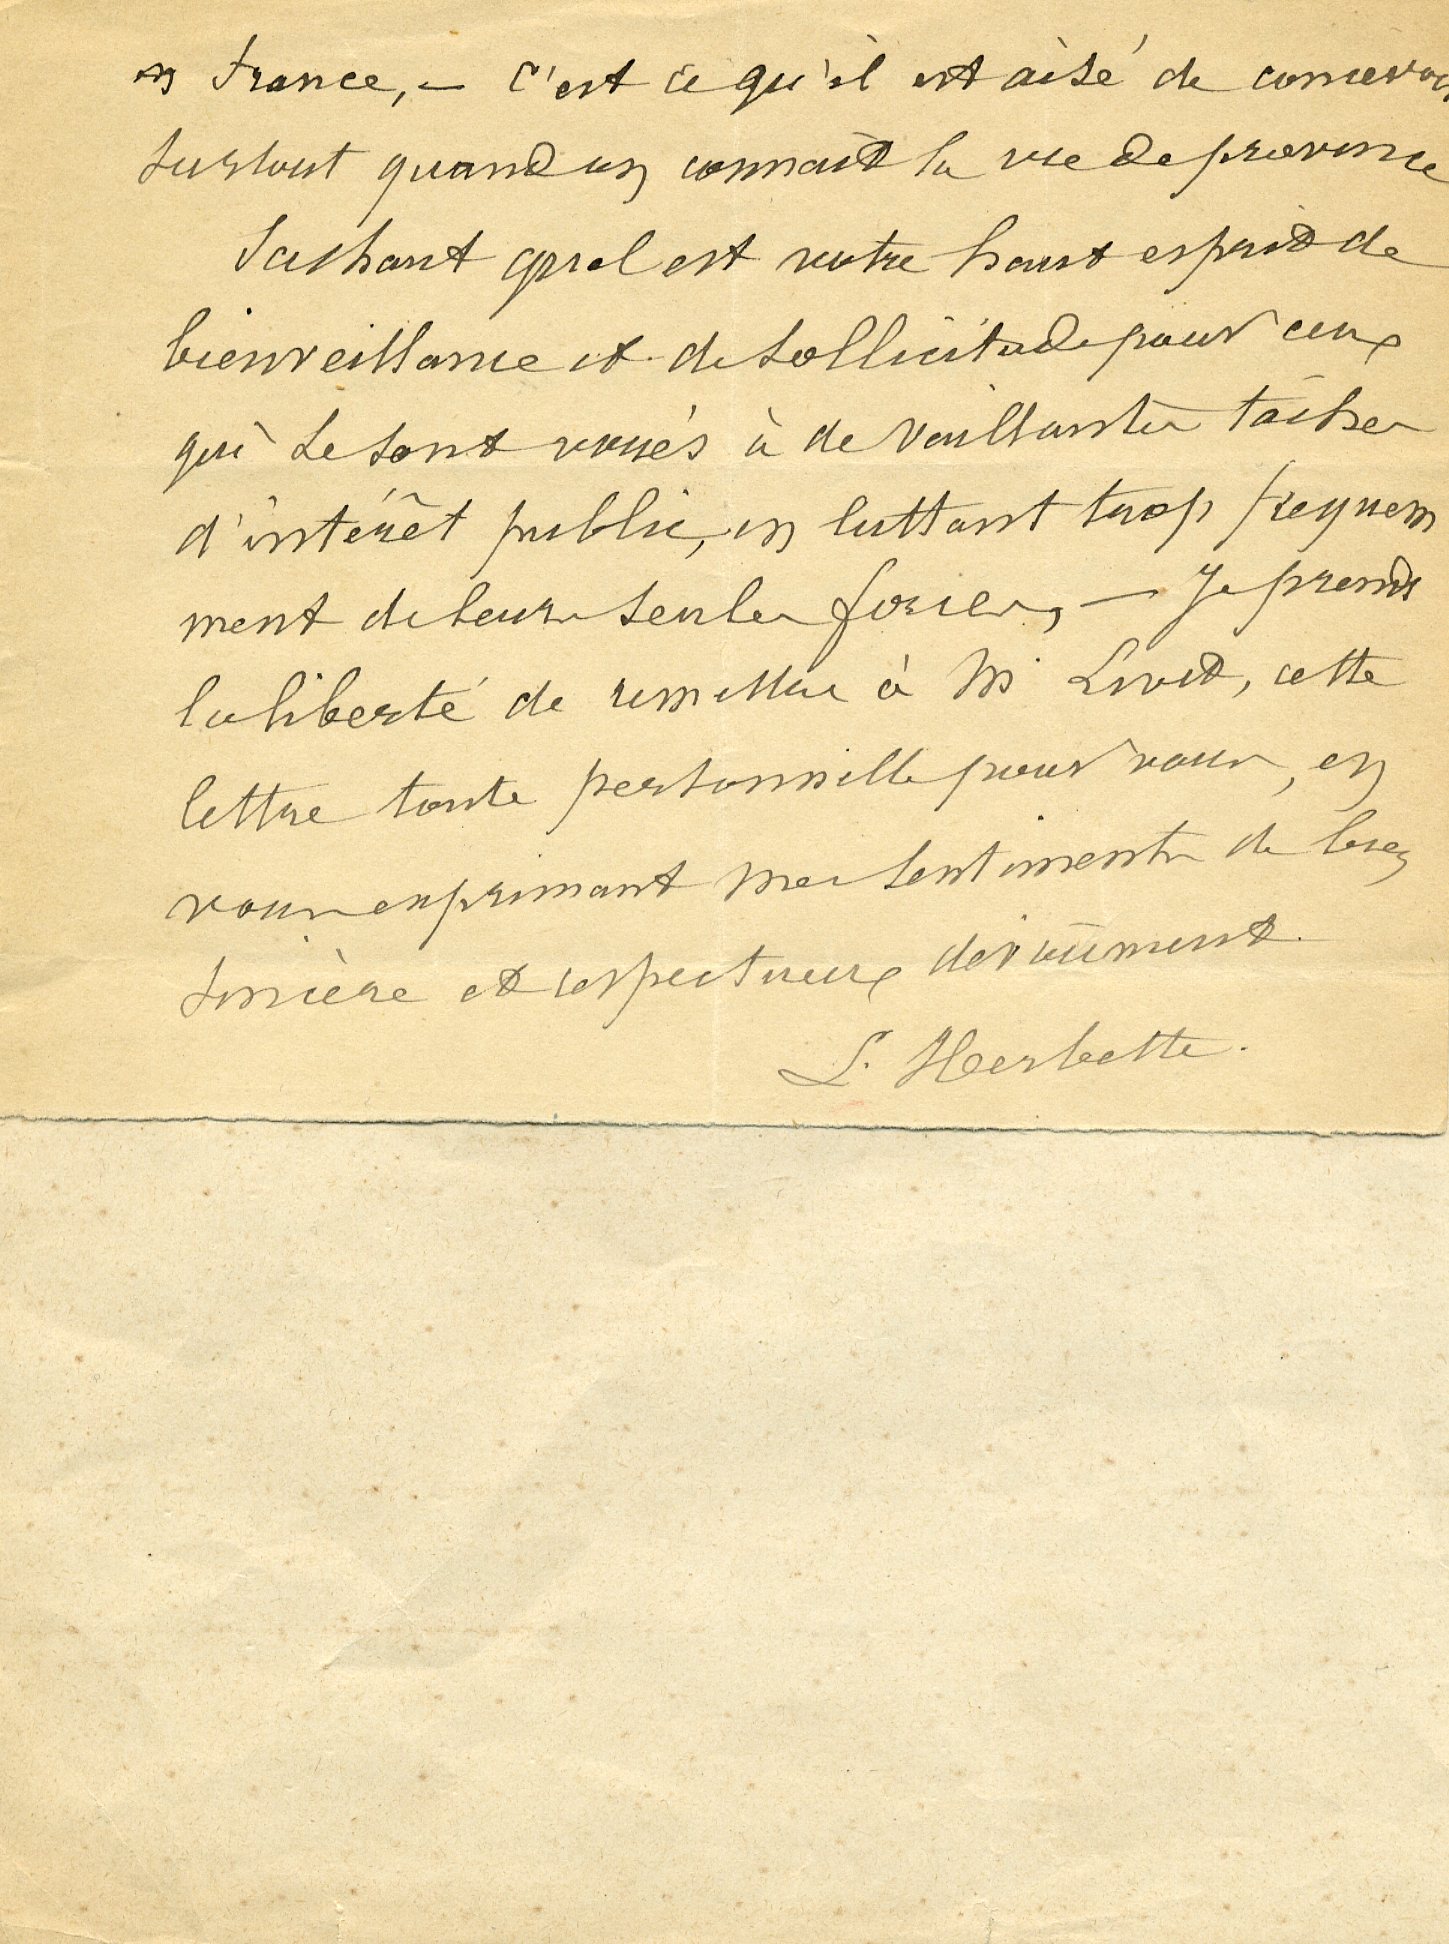 en France, — c'est ce qu'il est aisé de concevoir
surtout quand on connaît la vie de province
Sachant quel est votre haut esprit de
bienveillance et de sollicitude pour ceux
qui se sont voués à de vaillantes tâches
d'intérêt public, en luttant trop fréquem
ment de leurs seules forces, — je prends
la liberté de remettre à Mr Livet, cette
lettre toute personnelle pour vous, en
vous exprimant mes sentiments de bien
sincère et respectueux dévouement.
L. Herbette.